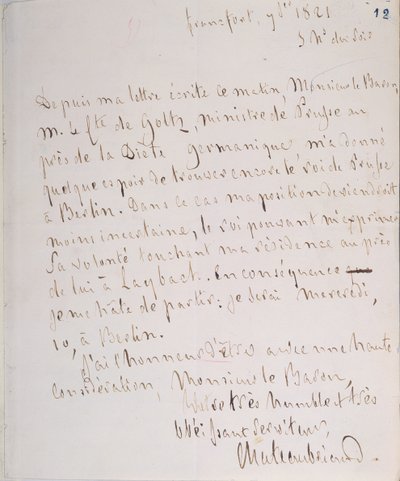 francfort, 7 bre 1821
12
5 h. du soir
Depuis ma lettre écrite ce matin, Monsieur le Baron,
M. le Cte de Goltz, ministre de Prusse au
près de la Diète germanique m'a donné
quelque espoir de trouver encore le roi de Prusse
à Berlin. Dans ce cas ma position deviendroit
moins incertaine, le roi pouvant m'exprimer
sa volonté touchant ma résidence au près
de lui à Laybach. En conséquence
je me hâte de partir: je serai mercredi,
10, à Berlin.
J'ai l'honneur d'être avec une haute
considération, Monsieur le Baron,
votre très humble et très
obéissant serviteur,
Chateaubriand.